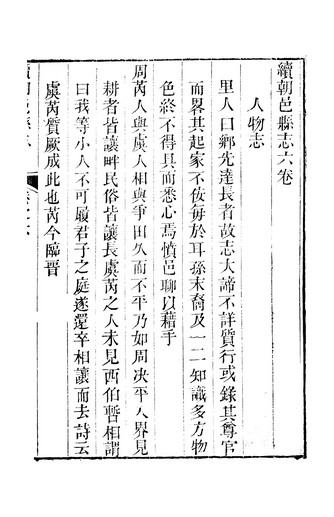 續朝邑縣志六卷
人物志
里人曰鄉先達長者故志大諦不詳質行或錄其尊官
而畧其起家不佞每於耳孫末裔及一二知識多方物
色終不得具而悉心焉慎邑聊以藉手
周芮人與虞人相與爭田久而不平乃如周决平入界見
耕者皆讓畔民俗皆讓長虞芮之人未見西伯暫相謂
曰我等小人不可履君子之庭遂還卒相讓而去詩云
虞芮質厥成此也芮今臨晉